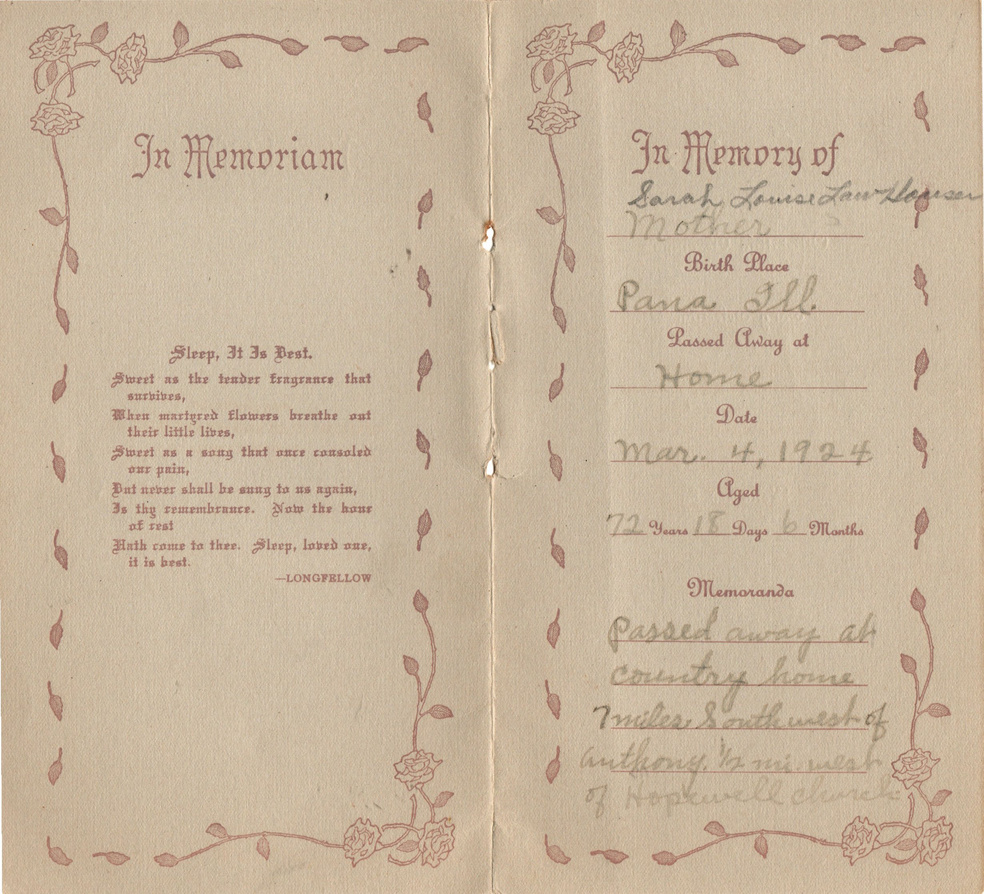 In Memoriam
Sleep, It Is Best.
Sweet as the tender fragrance that
survives,
When martyred flowers breathe out
their little lives,
Sweet as a song that once consoled
our pain,
But never shall be sung to us again,
Is thy remembrance. Now the hour
of rest
Hath come to thee. Sleep, loved one,
it is best.
—LONGFELLOW
In Memory of
Sarah Louise Law Hauser
Mother
Birth Place
Pana Ill.
Passed Away at
Home
Date
Mar. 4, 1924
Aged
72 Years 18 Days 6 Months
Memoranda
Passed away at
country home
7 miles Southwest of
Anthony, 1/2 mi. west
of Hopewell church